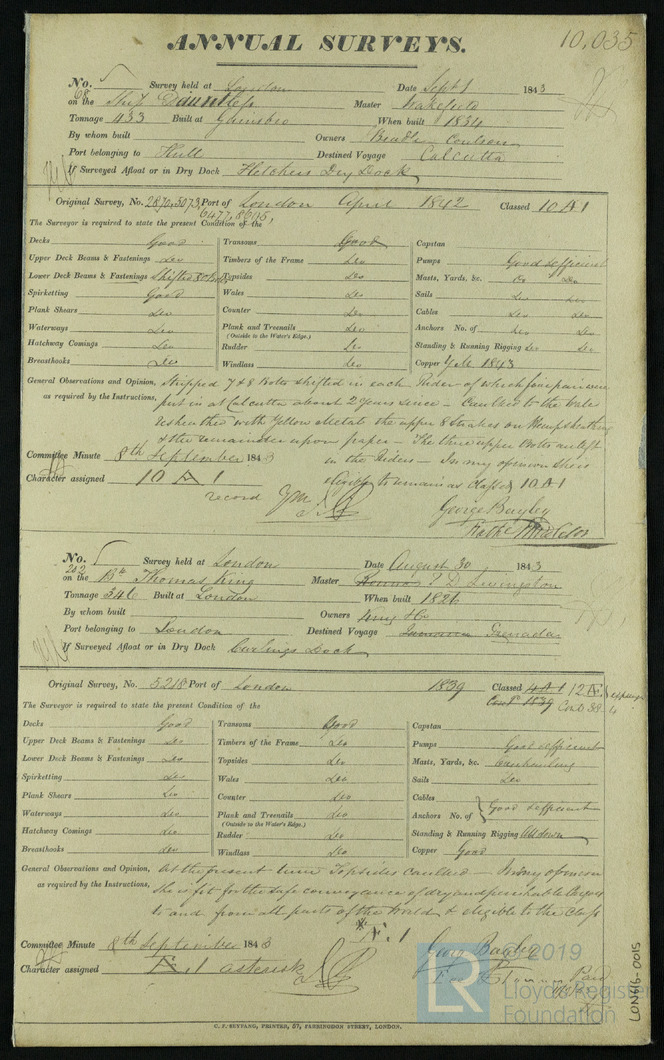 ANNUAL SURVEYS. 10,035
No. 68 Survey held at London Date Sept 1 1843
on the Ship Dauntless Master Wakefield
Tonnage 433 Built at Gainsbro When built 1834
By whom built Owners Coulson
Port belonging to Hull Destined Voyage Calcutta
If Surveyed Afloat or in Dry Dock Fletchers Dry Dock
Original Survey, No. 2870, 5073, Port of London April 1842 Classed 10 A 1
6477, 8605,
The Surveyor is required to state the present Condition of the
Decks Good Transoms Good Capstan
Upper Deck Beams & Fastenings Do Timbers of the Frame Do Pumps Good & efficient
Lower Deck Beams & Fastenings Shifted Topsides Do Masts, Yards, &c. Do Do
Spirketting Good Wales Do Sails Do Do
Plank Shears Do Counter Do Cables Do Do
Waterways Do Plank and Treenails Do Anchors No. of Do Do
(Outside to the Water's Edge.)
Hatchway Comings Do Rudder Do Standing & Running Rigging Do Do
Breasthooks Do Windlass Do Copper Y.M. 1843
General Observations and Opinion, Stripped 7 & 8 Bolts shifted in each Rider of which four pair were
as required by the Instructions, put in at Calcutta about 2 Years since — Caulked to the Wales
resheathed with Yellow Metal the upper 8 Strakes on Hemp sheathing
& the remainder upon paper — The three upper Bolts are left
Committee Minute 8th September 1843 in the Riders — In my opinion She is
Character assigned 10 A 1 eligible to remain as Classed 10 A 1
record YM George Bayley
No. 202 Survey held at London Date August 30 1843
on the Bk Thomas King Master T D Livingston
Tonnage 346 Built at London When built 1826
By whom built Owners King & Co
Port belonging to London Destined Voyage Grenada
If Surveyed Afloat or in Dry Dock Curlings Dock
Original Survey, No. 5218 Port of London 1839 Classed 4 A 1 12 A
Contd 1839 Cond 38
The Surveyor is required to state the present Condition of the
Decks Good Transoms Good Capstan
Upper Deck Beams & Fastenings Do Timbers of the Frame Do Pumps Good & efficient
Lower Deck Beams & Fastenings Do Topsides Do Masts, Yards, &c. Overhauling
Spirketting Do Wales Do Sails Do
Plank Shears Do Counter Do Cables
Waterways Do Plank and Treenails Do Anchors No. of Good & efficient
(Outside to the Water's Edge.)
Hatchway Comings Do Rudder Do Standing & Running Rigging All down
Breasthooks Do Windlass Do Copper Good
General Observations and Opinion, At the present time Topsides caulked — In my opinion
as required by the Instructions, She is fit for the safe conveyance of dry and perishable Cargoes
to and from all parts of the World & eligible to the Class
* Æ. 1
Committee Minute 8th September 1843
Character assigned Æ. 1 asterisk
C. F. SEYFANG, PRINTER, 57, FARRINGDON STREET, LONDON.
LR © 2019
Lloyd's Register
Foundation
LON616-0015